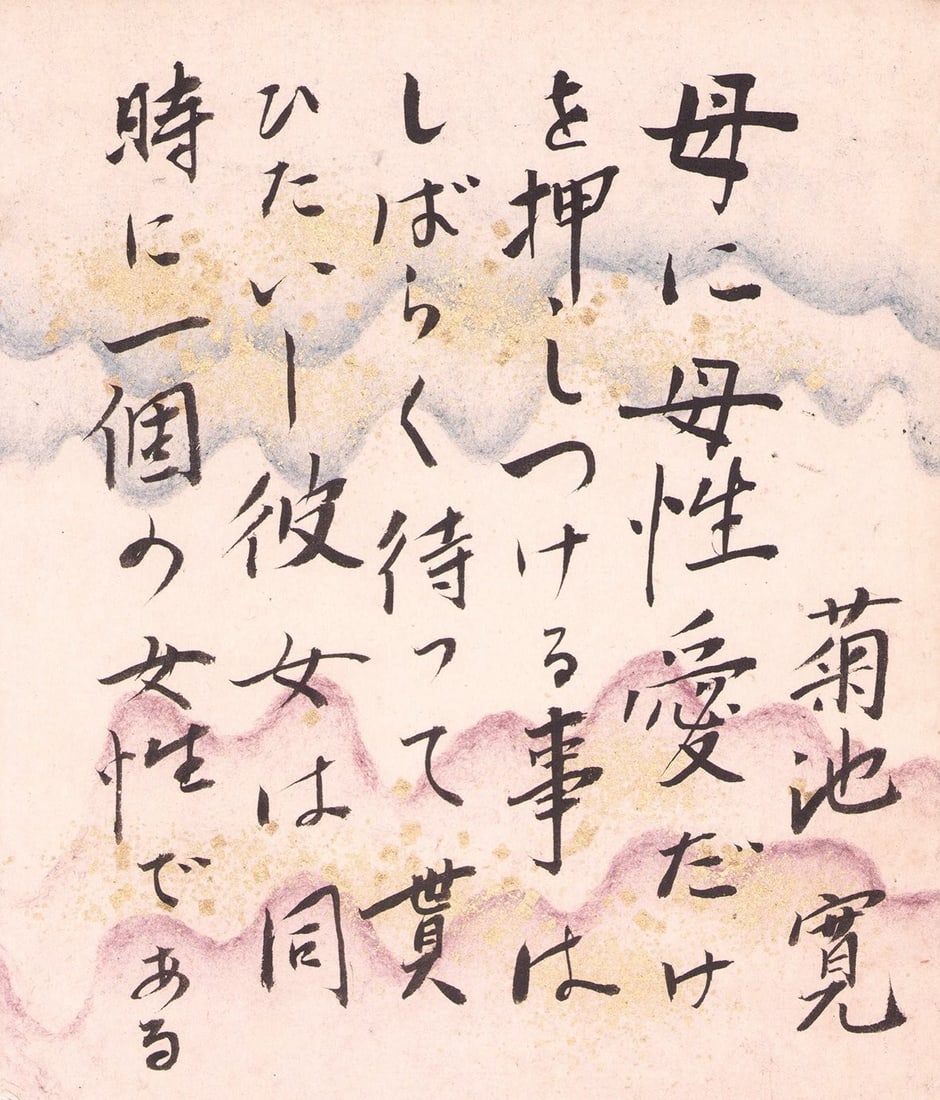 菊池寛
母に母性愛だけ
を押しつける事は
しばらく待って貰
ひたいー彼女は同
時に一個の女性である